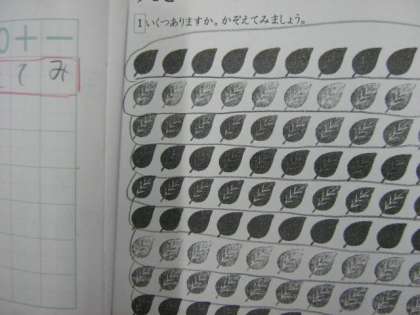 1 いくつありますか。かぞえてみましょう。
0+−
てみ